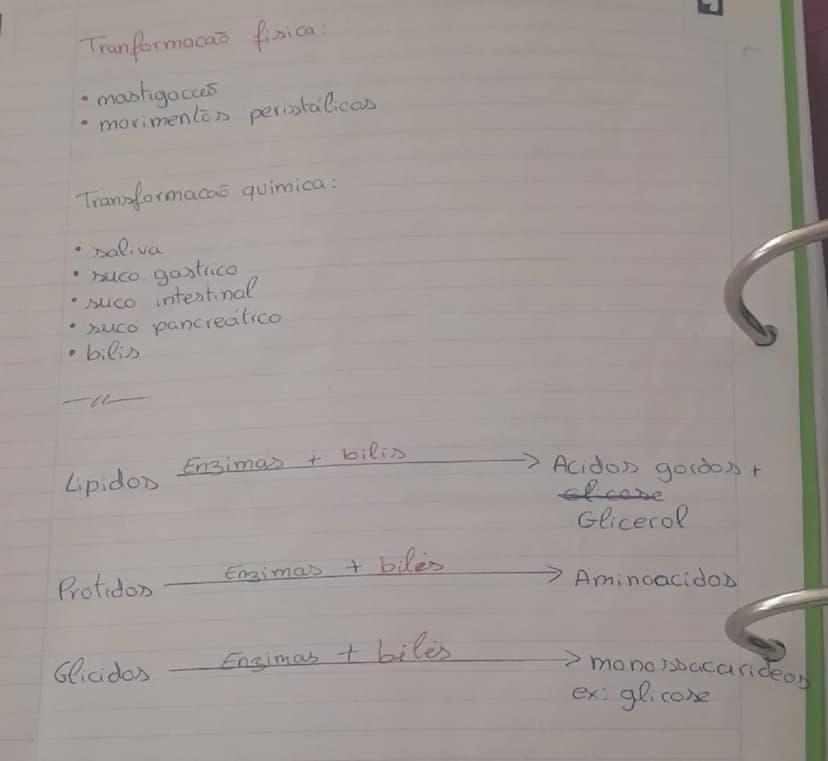 Tranformacaõ fisica:
• mastigacoes
• movimentos peristálicos
Transformacaõ quimica:
• saliva
• suco gastrico
• suco intestinal
• suco pancreático
• bilis
Lipidos Enzimas + bilis → Acidos gordos +
glicose
Glicerol
Protidos Enzimas + bilés → Aminoacidos
Glicidos Enzimas + bilés → monossacarideos
ex: glicose